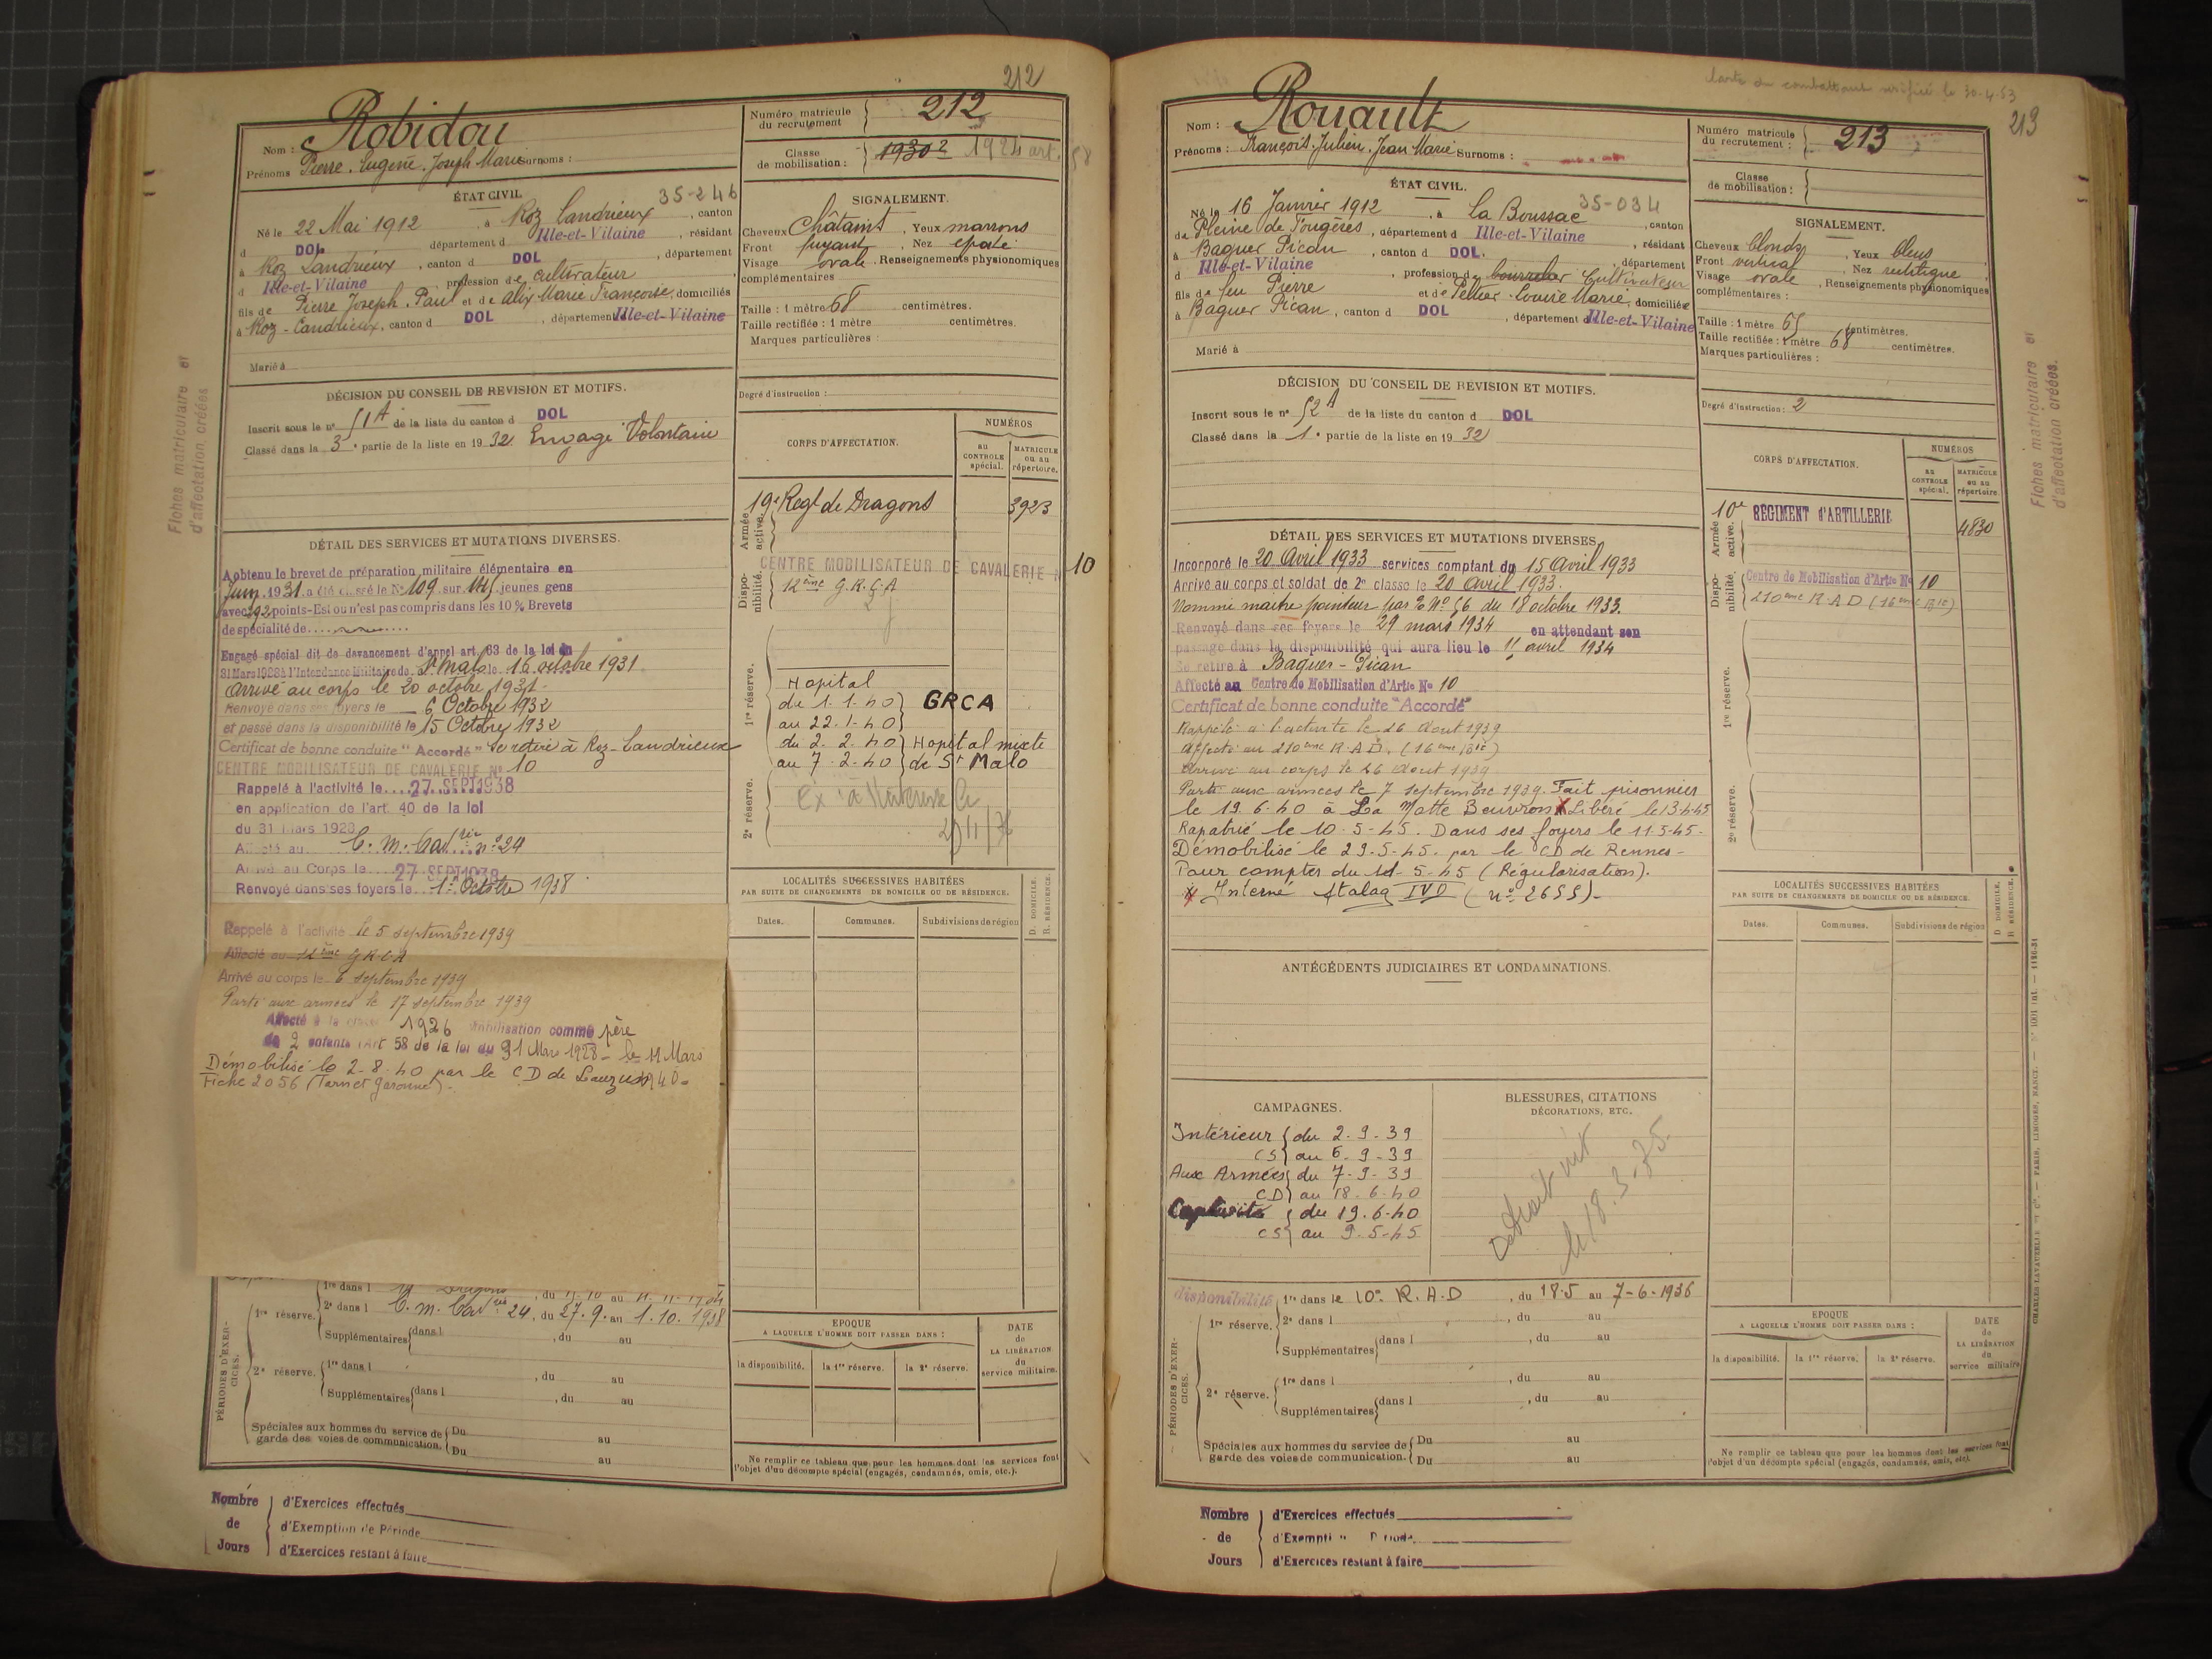 212
Nom : Robidou
Prénoms Pierre. Eugène. Joseph Marie Surnoms :
Numéro matricule du recrutement 212
Classe de mobilisation : 1930 2 1924 art. 58
ÉTAT CIVIL
35-246
Né le 22 Mai 1912, à Roz Landrieux, canton
d DOL département d Ille-et-Vilaine, résidant
à Roz Landrieux, canton d DOL, département
d Ille-et-Vilaine, profession de cultivateur
fils de Pierre Joseph. Paul et de Alix Marie Françoise, domiciliés
à Roz-Landrieux, canton d DOL, département d Ille-et-Vilaine
Marié à
SIGNALEMENT.
Cheveux Châtains, Yeux marrons
Front fuyant, Nez épaté
Visage ovale. Renseignements physionomiques
complémentaires :
Taille : 1 mètre 68 centimètres.
Taille rectifiée : 1 mètre centimètres.
Marques particulières :
Degré d'instruction :
DÉCISION DU CONSEIL DE REVISION ET MOTIFS.
Inscrit sous le n° 51 A de la liste du canton d DOL
Classé dans la 3e partie de la liste en 1932 Engagé Volontaire
Fiches matriculaire et
d'affectation créées
CORPS D'AFFECTATION.
NUMÉROS
AU CONTROLE spécial.
MATRICULE ou au répertoire.
Armée active.
19e Regt de Dragons 3923
Disponibilité.
CENTRE MOBILISATEUR DE CAVALERIE N 10
12ème G.R.C.A
1re réserve.
Hopital
du 1.1.40 GRCA
au 22.1.40
du 2.2.40 Hopital mixte
au 7.2.40 de St Malo
2e réserve.
DÉTAIL DES SERVICES ET MUTATIONS DIVERSES.
A obtenu le brevet de préparation militaire élémentaire en
Juin 1931 a été classé le N° 109 sur 145 jeunes gens
avec 392 points-Est ou n'est pas compris dans les 10 % Brevets
de spécialité de
Engagé spécial dit de devancement d'appel art. 63 de la loi du
31 Mars 1928 à l'Intendance Militaire de St Malo le 16 octobre 1931
Arrivé au corps le 20 octobre 1931.
Renvoyé dans ses foyers le 6 Octobre 1932
et passé dans la disponibilité le 15 Octobre 1932
Certificat de bonne conduite "Accordé" Se retire à Roz-Landrieux
CENTRE MOBILISATEUR DE CAVALERIE N° 10
Rappelé à l'activité le 27 SEPT 1938
en application de l'art. 40 de la loi
du 31 mars 1928
Affecté au C. M. Cavrie n° 24
Arrivé au Corps le 27 SEPT 1938
Renvoyé dans ses foyers le 1er Octobre 1938
Rappelé à l'activité le 5 septembre 1939
Affecté au 12ème G.R.C.A
Arrivé au corps le 6 septembre 1939
Parti aux armées le 17 septembre 1939
Affecté à la classe 1926 mobilisation comme père
de 2 enfants (Art 58 de la loi du 31 Mars 1928 - le 11 Mars
1940.
Démobilisé le 2-8-40 par le CD de Lauzun
Fiche 2056 (Tarn et Garonne).
LOCALITÉS SUCCESSIVES HABITÉES
PAR SUITE DE CHANGEMENTS DE DOMICILE OU DE RÉSIDENCE.
D. DOMICILE. R. RÉSIDENCE.
Dates. Communes. Subdivisions de région
PÉRIODES D'EXERCICES.
1re réserve.
1re dans l Dragons, du au
2e dans l C. M. Cavrie 24, du 27.9. au 1.10.1938
Supplémentaires dans l, du au
2e réserve.
1re dans l, du au
Supplémentaires dans l, du au
Spéciales aux hommes du service de Du au
garde des voies de communication. Du au
EPOQUE
A LAQUELLE L'HOMME DOIT PASSER DANS :
la disponibilité. la 1re réserve. la 2e réserve.
DATE de LA LIBÉRATION du service militaire.
Ne remplir ce tableau que pour les hommes dont les services font
l'objet d'un décompte spécial (engagés, condamnés, omis, etc.).
Nombre de Jours
d'Exercices effectués
d'Exemption de Période
d'Exercices restant à faire
Carte du combattant vérifiée le 30-4-53
213
Nom : Rouault
Prénoms : François. Julien. Jean Marie Surnoms :
Numéro matricule du recrutement : 213
Classe de mobilisation :
ÉTAT CIVIL.
35-034
Né le 16 Janvier 1912, à La Boussac, canton
de Pleine de Fougères, département d Ille-et-Vilaine, résidant
à Baguer Pican, canton d DOL., département
d Ille-et-Vilaine, profession de bourrelier Cultivateur
fils de feu Pierre et de Peltier Louise Marie, domiciliés
à Baguer Pican, canton d DOL, département d Ille-et-Vilaine
Marié à
SIGNALEMENT.
Cheveux blonds, Yeux bleus
Front vertical, Nez rectiligne
Visage ovale, Renseignements physionomiques
complémentaires :
Taille : 1 mètre 65 centimètres.
Taille rectifiée : 1 mètre 68 centimètres.
Marques particulières :
Degré d'instruction : 2
DÉCISION DU CONSEIL DE RÉVISION ET MOTIFS.
Inscrit sous le n° 52 A de la liste du canton d DOL
Classé dans la 1e partie de la liste en 1932
CORPS D'AFFECTATION.
NUMÉROS
AU CONTROLE spécial.
MATRICULE ou au répertoire.
Armée active.
10e RÉGIMENT d'ARTILLERIE 4830
Disponibilité.
Centre de Mobilisation d'Artie N° 10
210ème R.A.D (16ème Bie)
1re réserve.
2e réserve.
Fiches matriculaire et
d'affectation créées.
DÉTAIL DES SERVICES ET MUTATIONS DIVERSES
Incorporé le 20 Avril 1933 services comptant du 15 Avril 1933
Arrivé au corps et soldat de 2e classe le 20 avril 1933.
Nommé maitre pointeur par O N° 66 du 18 octobre 1933.
Renvoyé dans ses foyers le 29 mars 1934 en attendant son
passage dans la disponibilité qui aura lieu le 11 avril 1934
Se retire à Baguer-Pican
Affecté au Centre de Mobilisation d'Artie N° 10
Certificat de bonne conduite "Accordé"
Rappelé à l'activité le 26 Aout 1939
Affecté au 210ème R.A.D. (16ème Bie)
Arrivé au corps le 26 Aout 1939
Parti aux armées le 7 septembre 1939. Fait prisonnier
le 19.6.40 à La Motte Beuvron X Libéré le 13-4-45
Rapatrié le 10-5-45. Dans ses foyers le 11-5-45-
Démobilisé le 29-5-45. par le CD de Rennes-
Pour compter du 11-5-45 (Régularisation).
X Interné Stalag IVD (n° 2655)-
ANTÉCÉDENTS JUDICIAIRES ET CONDAMNATIONS.
CAMPAGNES.
Intérieur du 2-9-39
CS au 6-9-39
Aux Armées du 7-9-39
CD au 18-6-40
Captivité du 19-6-40
CS au 9-5-45
BLESSURES, CITATIONS
DÉCORATIONS, ETC.
le 18.3.75.
LOCALITÉS SUCCESSIVES HABITÉES
PAR SUITE DE CHANGEMENTS DE DOMICILE OU DE RÉSIDENCE.
D. DOMICILE. R. RÉSIDENCE.
Dates. Communes. Subdivisions de région
PÉRIODES D'EXERCICES.
disponibilité
1re réserve.
1re dans le 10e R.A.D, du 18-5 au 7-6-1936
2e dans l, du au
Supplémentaires dans l, du au
2e réserve.
1re dans l, du au
Supplémentaires dans l, du au
Spéciales aux hommes du service de Du au
garde des voies de communication. Du au
EPOQUE
A LAQUELLE L'HOMME DOIT PASSER DANS :
la disponibilité. la 1re réserve. la 2e réserve.
DATE de LA LIBÉRATION du service militaire
Ne remplir ce tableau que pour les hommes dont les services font
l'objet d'un décompte spécial (engagés, condamnés, omis, etc.).
CHARLES-LAVAUZELLE et Cie. — PARIS, LIMOGES, NANCY. — N° 1001 Int. — 1126-31
Nombre de Jours
d'Exercices effectués
d'Exemption Période
d'Exercices restant à faire